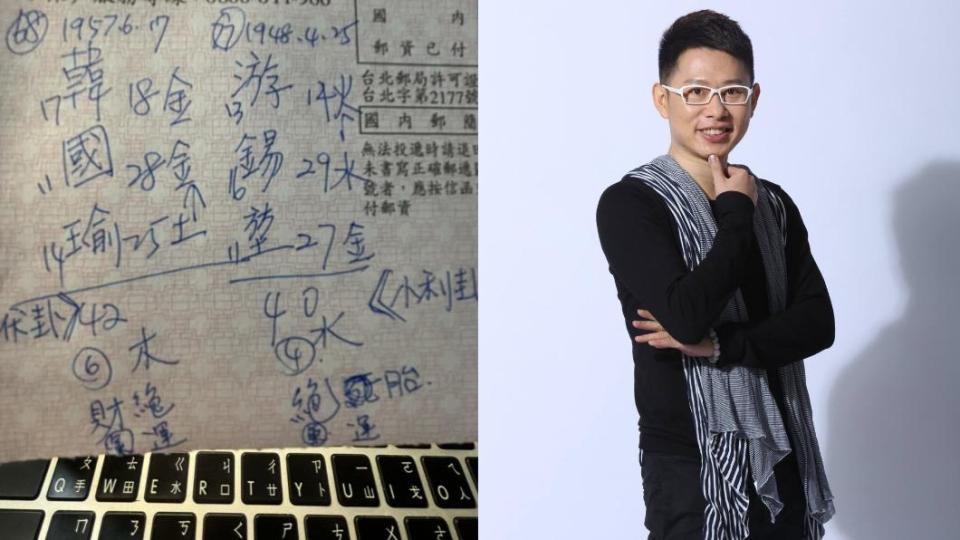 68 1957.6.17
77 1948.4.25
韓 17 18金
國 11 28金
瑜 14 25土
42
6 木
財 絕
運
游 13 14火
錫 16 29水
堃 11 27金
40 《小利卦
4 水
絕 胎.
運
國 內
郵資已付
台北郵局許可證
台北字第2177號
國內郵簡
無法投遞時請退
未書寫正確郵遞
號者，應按信函
付郵資
Q 手 W 田 E 水 R 口 T 廿 Y 卜 U 山 I 戈 O 人
ㄆ ㄊ ㄍ ㄐ ㄔ ㄗ ㄧ ㄛ ㄟ
ㄇ ㄋ ㄎ ㄑ ㄕ ㄘ ㄨ ㄜ